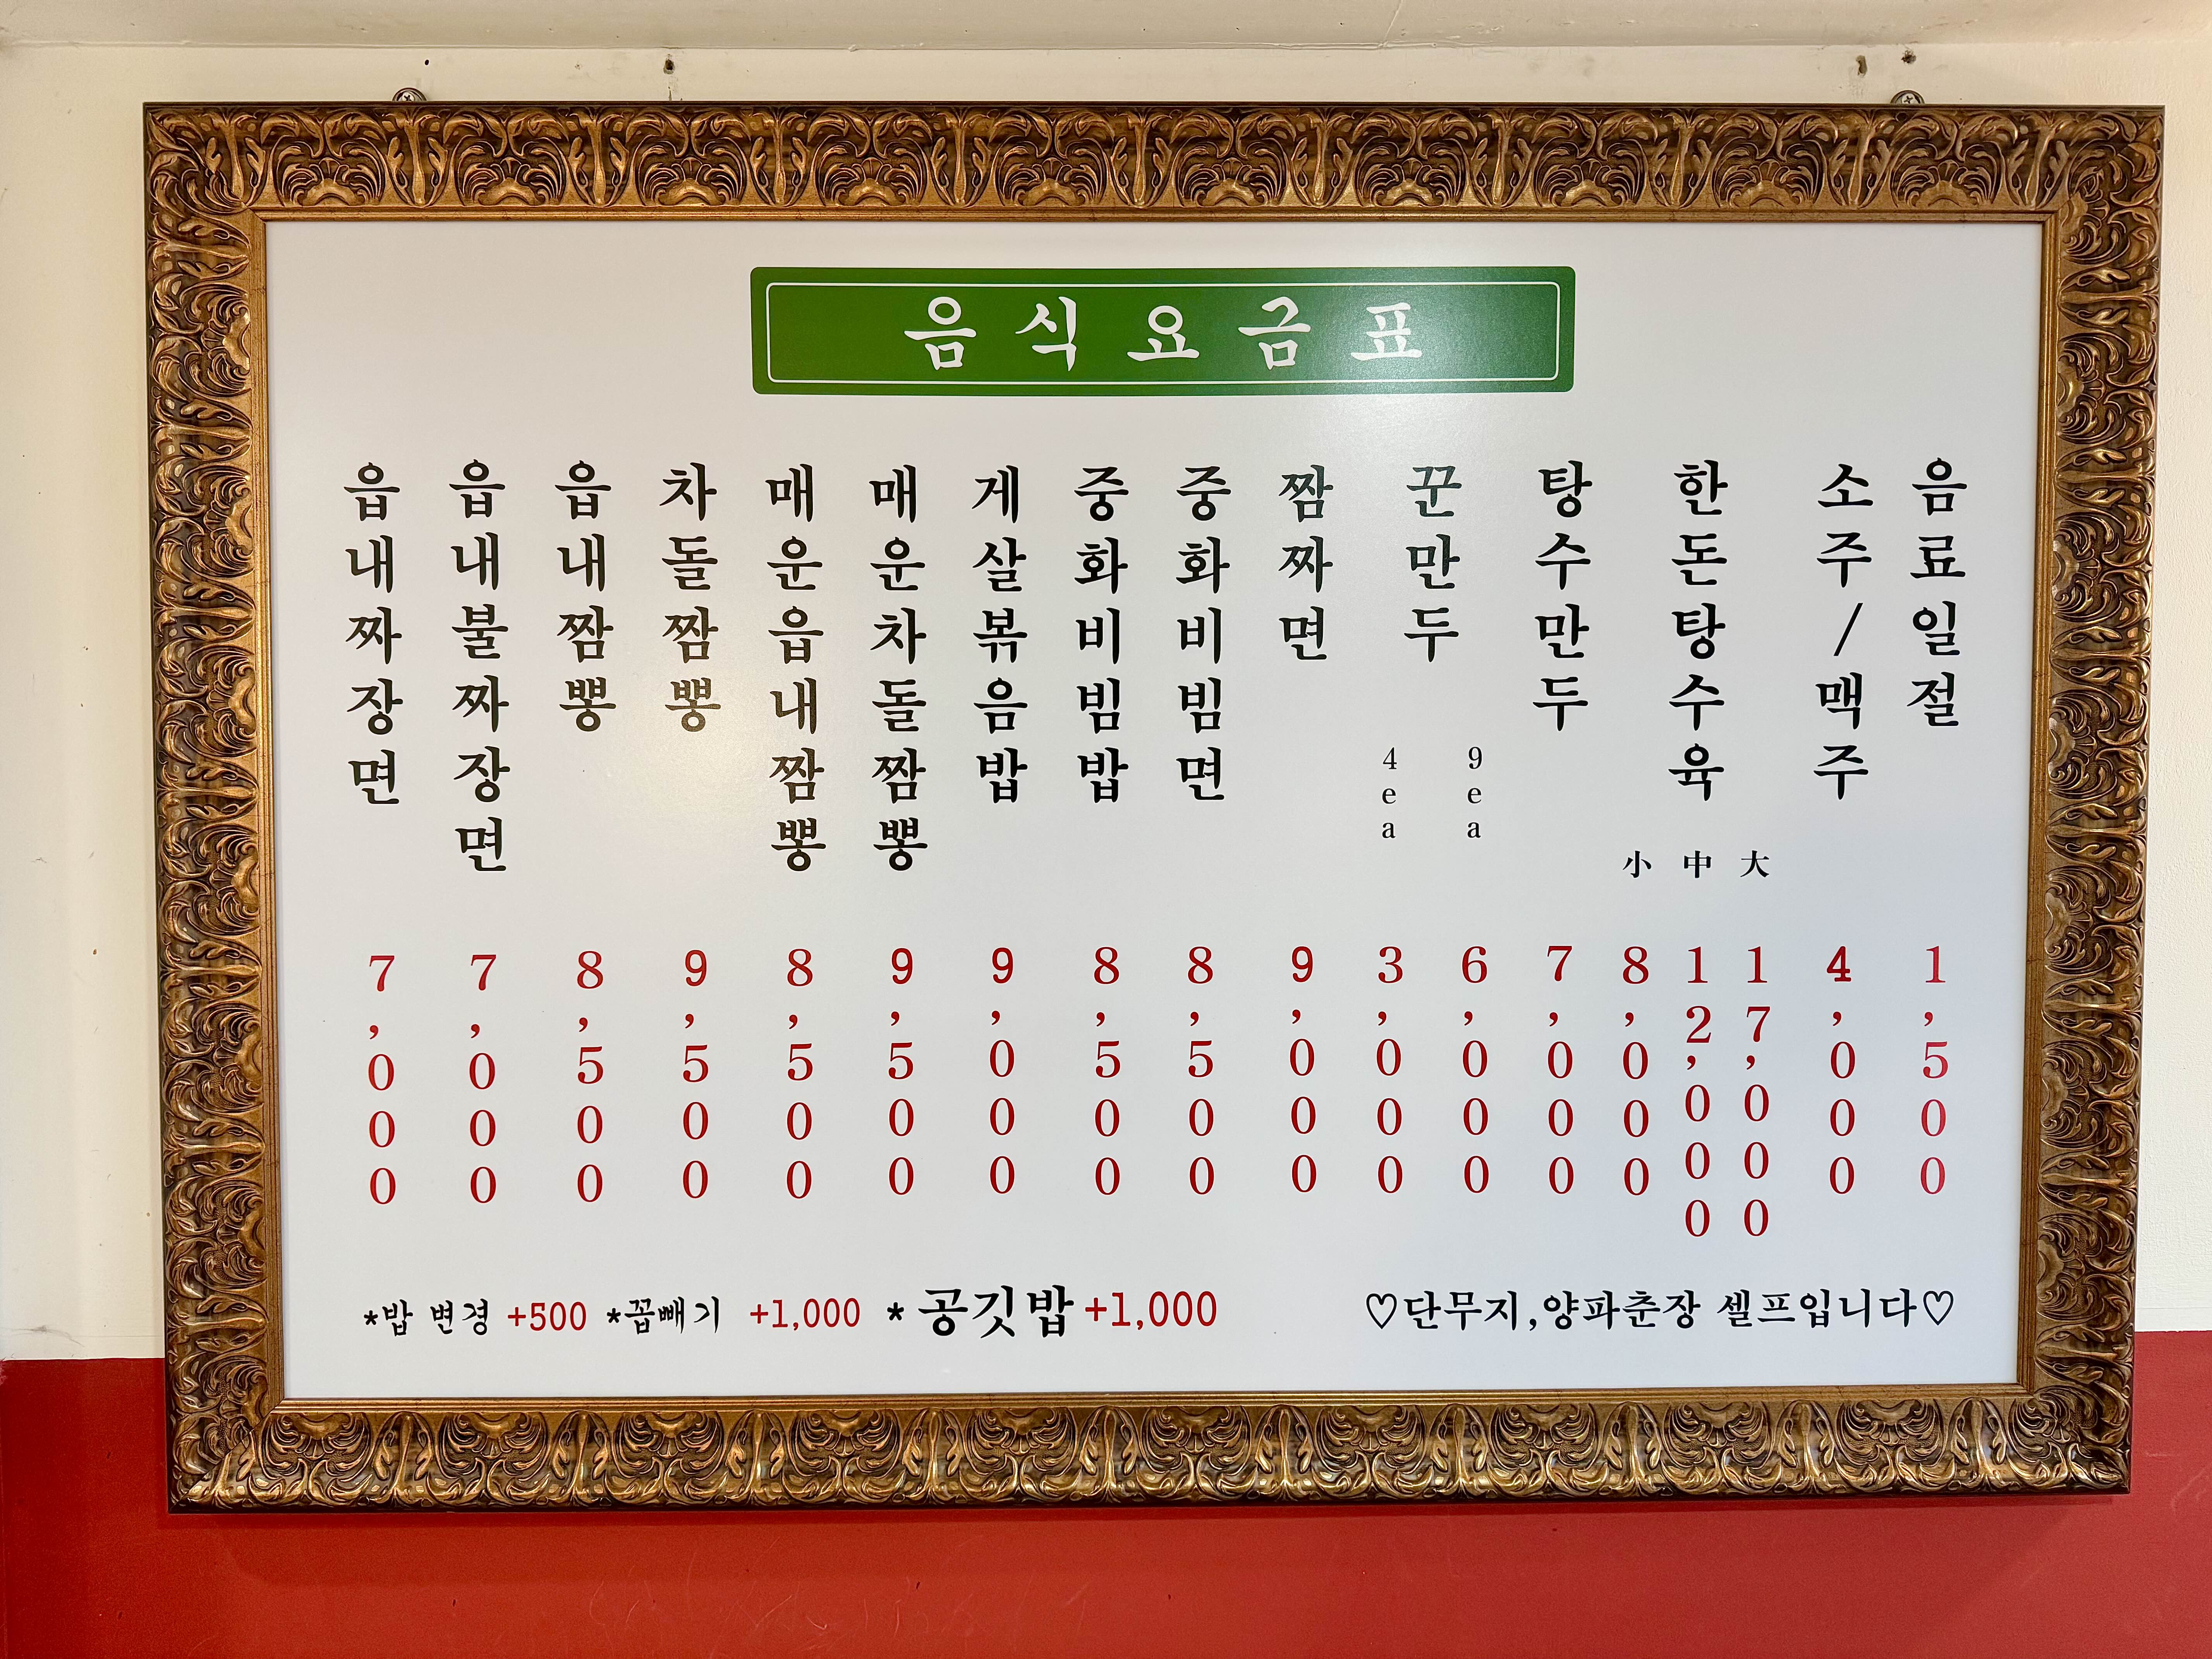 음식요금표
읍내짜장면 7,000
읍내불짜장면 7,000
읍내짬뽕 8,500
차돌짬뽕 9,500
매운읍내짬뽕 8,500
매운차돌짬뽕 9,500
게살볶음밥 9,000
중화비빔밥 8,500
중화비빔면 8,500
짬짜면 9,000
꾼만두
4ea 3,000
9ea 6,000
탕수만두 7,000
한돈탕수육
小 8,000
中 12,000
大 17,000
소주/맥주 4,000
음료일절 1,500
*밥 변경 +500 *꼽빼기 +1,000 *공깃밥 +1,000
♡단무지,양파춘장 셀프입니다♡